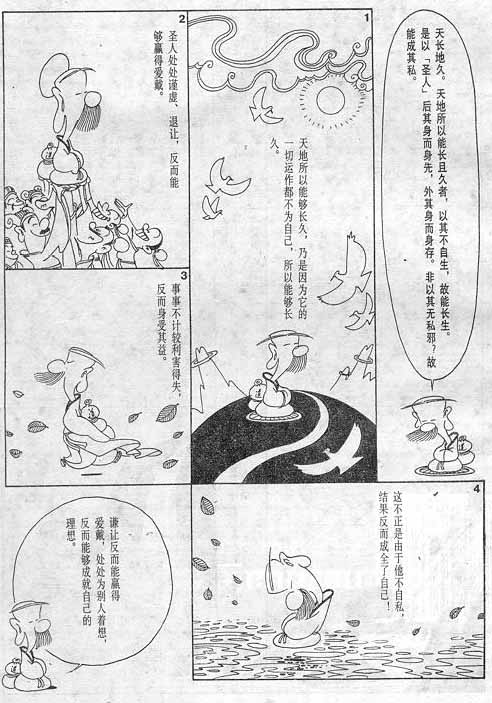 天长地久。天地所以能长且久者，以其不自生，故能长生。
是以「圣人」后其身而身先，外其身而身存。非以其无私邪？故
能成其私。
1
天地所以能够长久，乃是因为它的
一切运作都不为自己，所以能够长
久。
2
圣人处处谨虚、退让，反而能
够赢得爱戴。
3
事事不计较利害得失，
反而身受其益。
4
这不正是由于他不自私，
结果反而成全了自己！
谦让反而能赢得
爱戴，处处为别人着想，
反而能够成就自己的
理想。